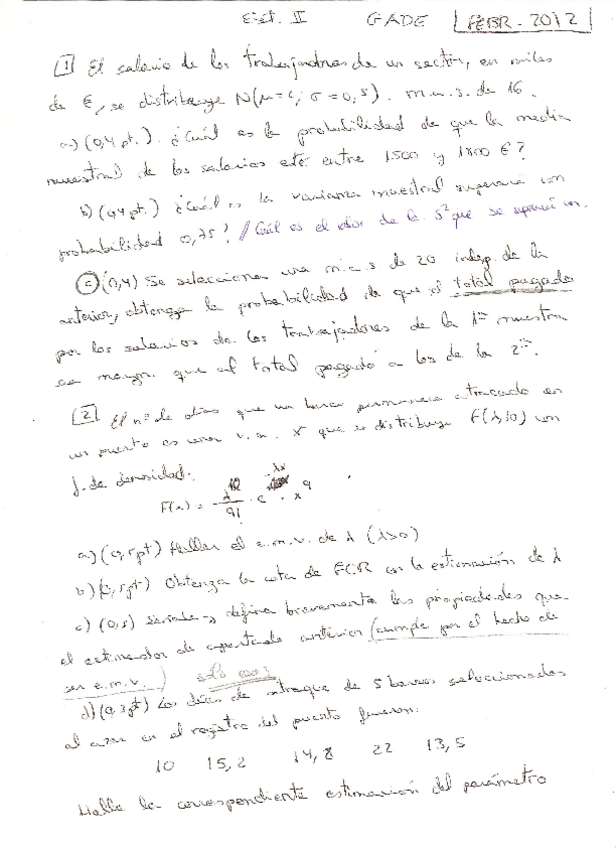 Est. II GADE FEBR. 2012
1 El salario de los trabajadores de un sector, en miles
de €, se distribuye N(μ= ; σ=0,5). m.a.s. de 16.
a) (0,4 pt.) ¿Cuál es la probabilidad de que la media
muestral de los salarios esté entre 1500 y 1800 €?
b) (0,4 pt.) ¿Cuál es la varianza muestral superará con
probabilidad 0,75? // Cuál es el valor de la S² que se
c) (0,4) Se selecciona una m.a.s de 20 indep. de la
anterior, obtenga la probabilidad de que el total pagado
por los salarios de los trabajadores de la 1ª muestra
sea mayor que al total pagado a los de la 2ª.
2 El nº de días que un barco permanece atracado en
un puerto es una v.a. X que se distribuye Γ(λ,10) con
f. de densidad.
F(x) = λ^10 / 9! · e^-λx · x^9
a) (0,5pt) Hallar el e.m.v. de λ (λ>0)
b) (0,5pt) Obtenga la cota de FCR en la estimación de λ
c) (0,5) defina brevemente las propiedades que
el estimador de criterios (cumple por el hecho de
ser e.m.v.) solo eso
d) (0,3pt) Los días de atraque de 5 barcos seleccionados
al azar en el registro del puerto fueron:
10 15,2 14,8 22 13,5
Halle la correspondiente estimación del parámetro